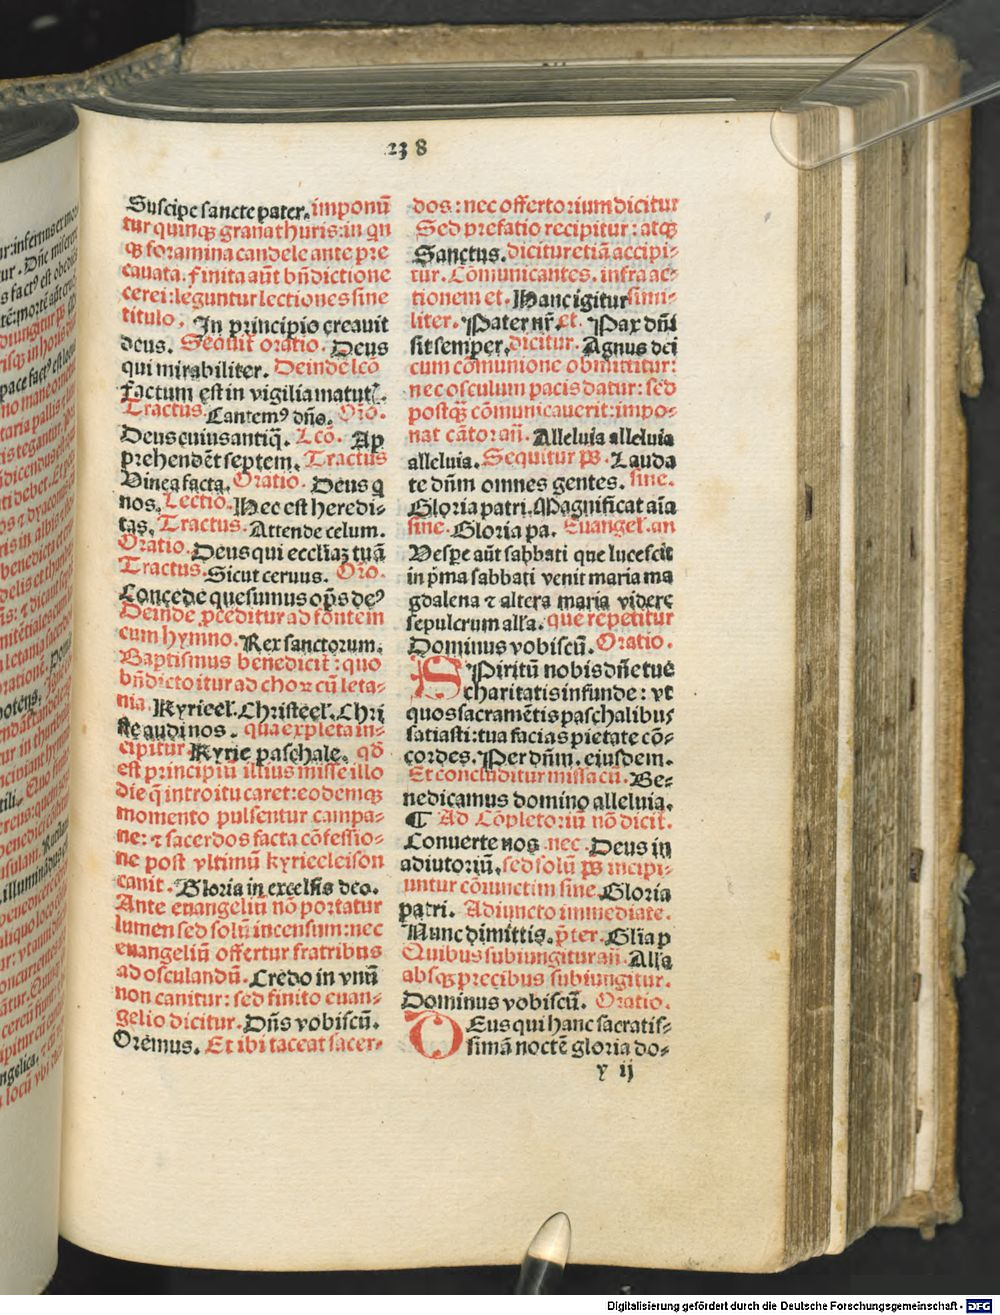 238
Suscipe sancte pater. imponū
tur quinqꝫ grana thuris: in qn
qꝫ foramina candele ante pre
cauata. Finita aūt bn̄dictione
cerei: leguntur lectiones sine
titulo. In principio creauit
deus. Sequit̄ oratio. Deus
qui mirabiliter. Deinde lcō
Factum est in vigilia matut̄.
Tractus. Cantemꝰ dn̄o. Orō.
Deus cuius antiq̄. Lcō. Ap
prehendēt septem. Tractus
Vinea facta. Oratio. Deus q
nos. Lectio. Hec est heredi-
tas. Tractus. Attende celum.
Oratio. Deus qui eccliaꝫ tuā
Tractus. Sicut ceruus. Orō.
Concede quesumus op̄s deꝰ
Deinde ꝓceditur ad fontem
cum hymno. Rex sanctorum.
Baptismus benedicit̄: quo
bn̄dicto itur ad choꝝ cū leta-
nia. Kyrieel'. Christeel'. Chri
ste audi nos. qua expleta in-
cipitur. Kyrie paschale. qd̄
est principiū illius misse illo
die q̄ introitu caret: eodemqꝫ
momento pulsentur campa-
ne: ⁊ sacerdos facta cōfessio-
ne post vltimū kyrieeleison
canit. Gloria in excelsis deo.
Ante euangeliū nō portatur
lumen sed solū incensum: nec
euangeliū offertur fratribus
ad osculandū. Credo in vnū
non canitur: sed finito euan-
gelio dicitur. Dn̄s vobiscū.
Oremus. Et ibi taceat sacer-
dos: nec offertorium dicitur
Sed prefatio recipitur: atqꝫ
Sanctus. dicitur etiā accipi-
tur. Cōmunicantes. infra ac-
tionem et. Hanc igitur simi-
liter. Pater nr̄. Et. Pax dn̄i
sit semper. dicitur. Agnus dei
cum comunione obmittitur:
nec osculum pacis datur: sed
postqꝫ cōmunicauerit: impo-
nat cātor an̄. Alleluia alleluia
alleluia. Sequitur ps̄. Lauda
te dn̄m omnes gentes. sine.
Gloria patri. Magnificat aīa
sine. Gloria pa. Euangel'. an
Vespe aūt sabbati que lucescit
in p̄ma sabbati venit maria ma
gdalena ⁊ altera maria videre
sepulcrum alla. que repetitur
Dominus vobiscū. Oratio.
SPiritū nobis dn̄e tue
charitatis infunde: vt
quos sacramētis paschalibus
satiasti: tua facias pietate cō-
cordes. Per dn̄m. eiusdem.
Et concluditur missa cū. Be-
nedicamus domino alleluia.
¶ Ad Cōpletoriū nō dicit̄.
Conuerte nos. nec. Deus in
adiutoriū. sed solū ps̄ incipi-
untur cōiunctim sine. Gloria
patri. Adiuncto immediate.
Nunc dimittis. p̄ter. Glīa p
Quibus subiungitur an̄. Alla
absqꝫ precibus subiungitur.
Dominus vobiscū. Oratio.
DEus qui hanc sacratis-
simā noctē gloria do-
y ij
Digitalisierung gefördert durch die Deutsche Forschungsgemeinschaft - DFG